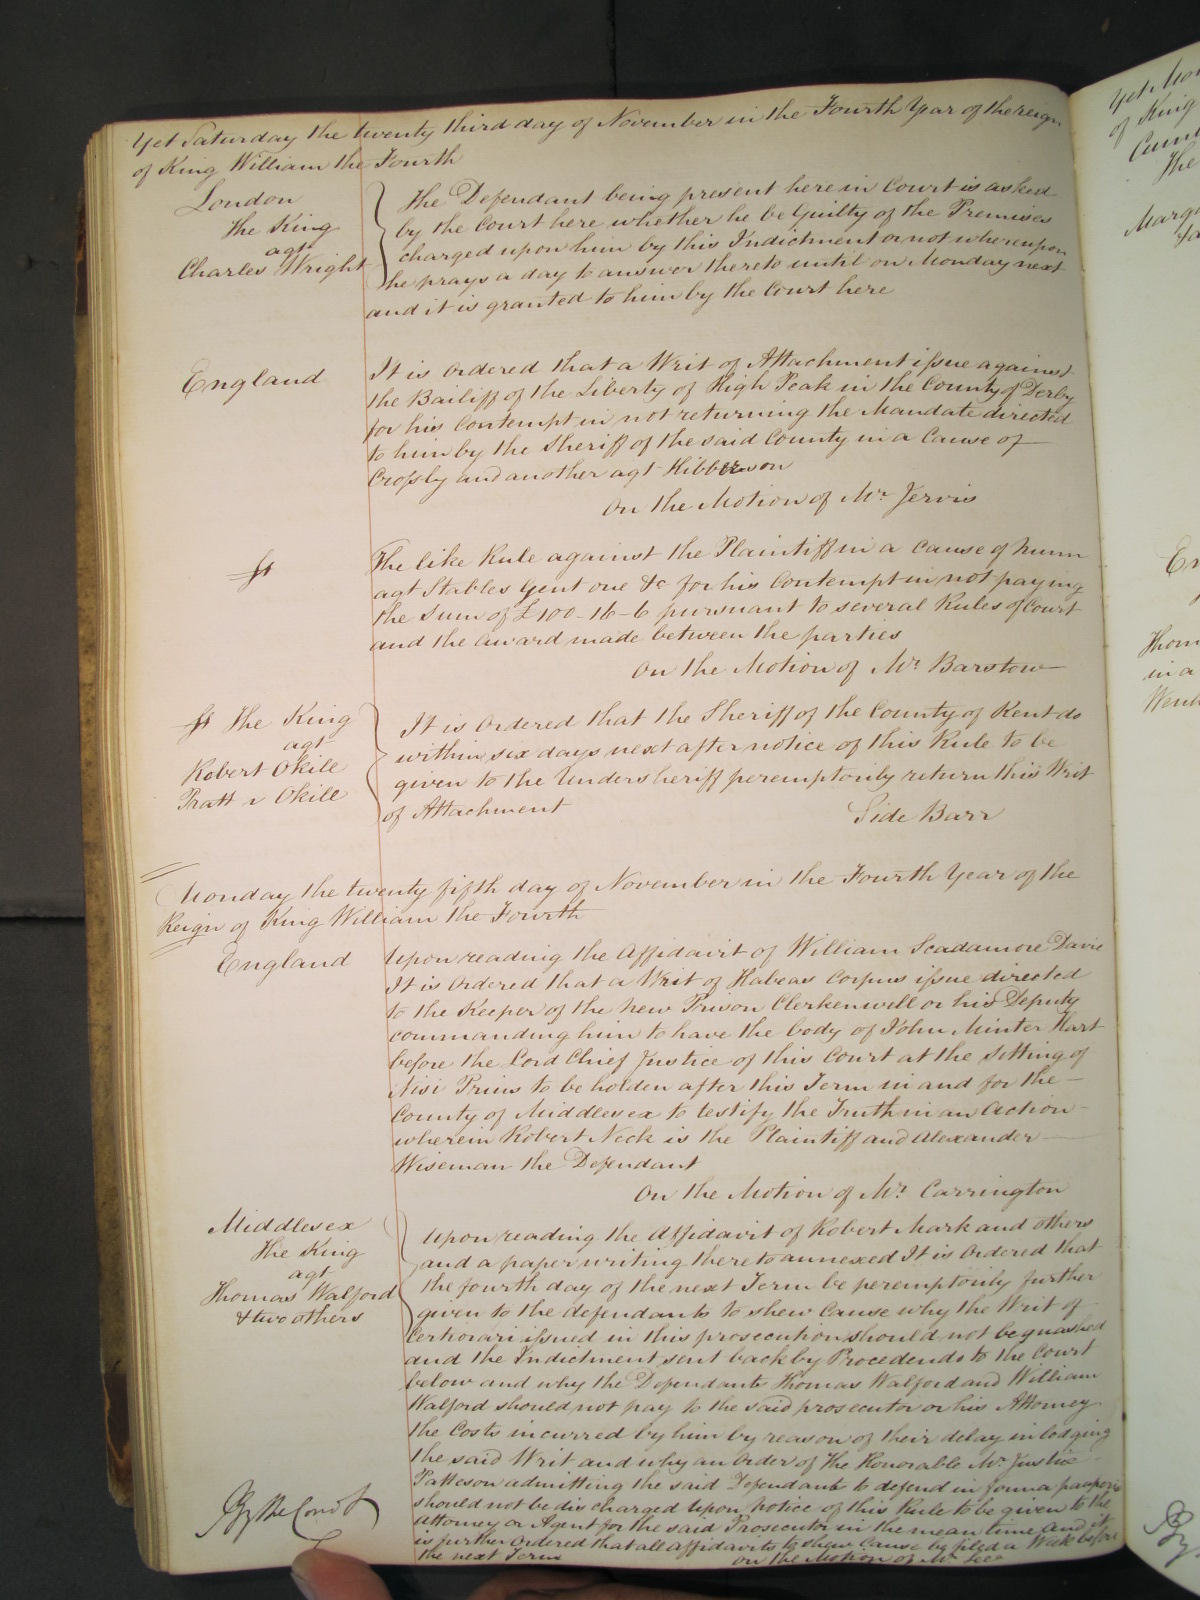 Yet Saturday the twenty third day of November in the Fourth Year of the reign
of King William the Fourth
London
The King
agt
Charles Wright
The Defendant being present here in Court is asked
by the Court here whether he be Guilty of the Premises
charged upon him by this Indictment or not whereupon
he prays a day to answer thereto until on Monday next
and it is granted to him by the Court here
England
It is Ordered that a Writ of Attachment issue against
the Bailiff of the Liberty of High Peak in the County of Derby
for his Contempt in not returning the Mandate directed
to him by the Sheriff of the said County in a Cause of
Crossby and another agt Hibberson
On the Motion of Mr. Jervis
The like Rule against the Plaintiff in a Cause of Nunn
agt Stables Gent one &c for his Contempt in not paying
the Sum of £100-16-6 pursuant to several Rules of Court
and the Award made between the parties
On the Motion of Mr. Barstow
The King
agt
Robert Okill
Pratt v Okill
It is Ordered that the Sheriff of the County of Kent do
within six days next after notice of this Rule to be
given to the Undersheriff peremptorily return this Writ
of Attachment
Side Barr
Monday the twenty fifth day of November in the Fourth Year of the
Reign of King William the Fourth
England
Upon reading the Affidavit of William Scadamore Davie
It is Ordered that a Writ of Habeas Corpus issue directed
to the Keeper of the New Prison Clerkenwell or his Deputy
commanding him to have the body of John Minter Hart
before the Lord Chief Justice of this Court at the Sitting of
Nisi Prius to be holden after this Term in and for the
County of Middlesex to testify the Truth in an Action
wherein Robert Neck is the Plaintiff and Alexander
Wiseman the Defendant
On the Motion of Mr. Carrington
Middlesex
The King
agt
Thomas Walford
& two others
Upon reading the Affidavit of Robert Mark and others
and a paper writing thereto annexed It is Ordered that
the fourth day of the next Term be peremptorily further
given to the defendants to shew Cause why the Writ of
Certiorari issued in this prosecution should not be quashed
and the Indictment sent back by Procedendo to the Court
below and why the Defendants Thomas Walford and William
Walford should not pay to the said prosecutor or his Attorney
the Costs incurred by him by reason of their delay in lodging
the said Writ and why an Order of The Honorable Mr. Justice
Patteson admitting the said Defendants to defend in forma pauperis
should not be discharged Upon Notice of this Rule to be given to the
Attorney or Agent for the said Prosecutor in the mean time And it
is further Ordered that all Affidavits to shew Cause be filed a Week before
the next Term
On the Motion of Mr. Lee
By the Court